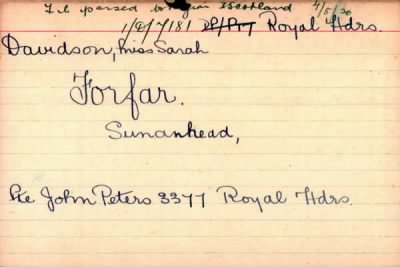 passed to Scotland 4/5/20
Royal Hdrs.
Davidson, Miss Sarah
Forfar.
Sunanhead,
Pte John Peters 3377 Royal Hdrs.